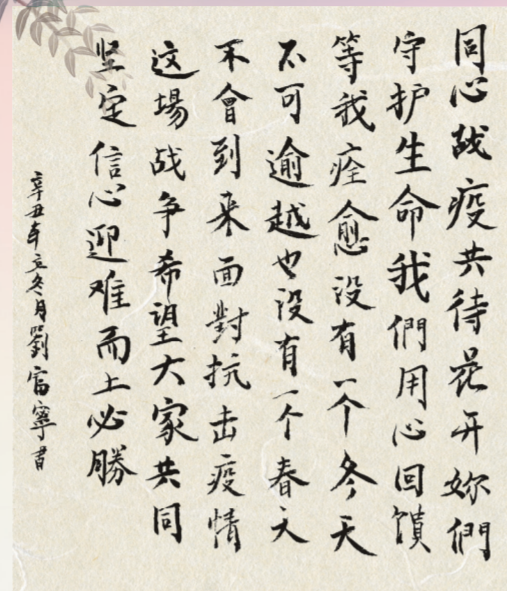 同心战疫共待花开妳們
守护生命我們用心回饋
等我痊愈没有一个冬天
不可逾越也没有一个春天
不會到来面對抗击疫情
这場战争希望大家共同
坚定信心迎难而上必勝
辛丑年立冬月劉富寧書